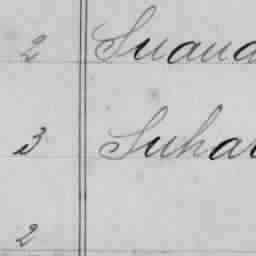 2 Suana
3 Suhar
2